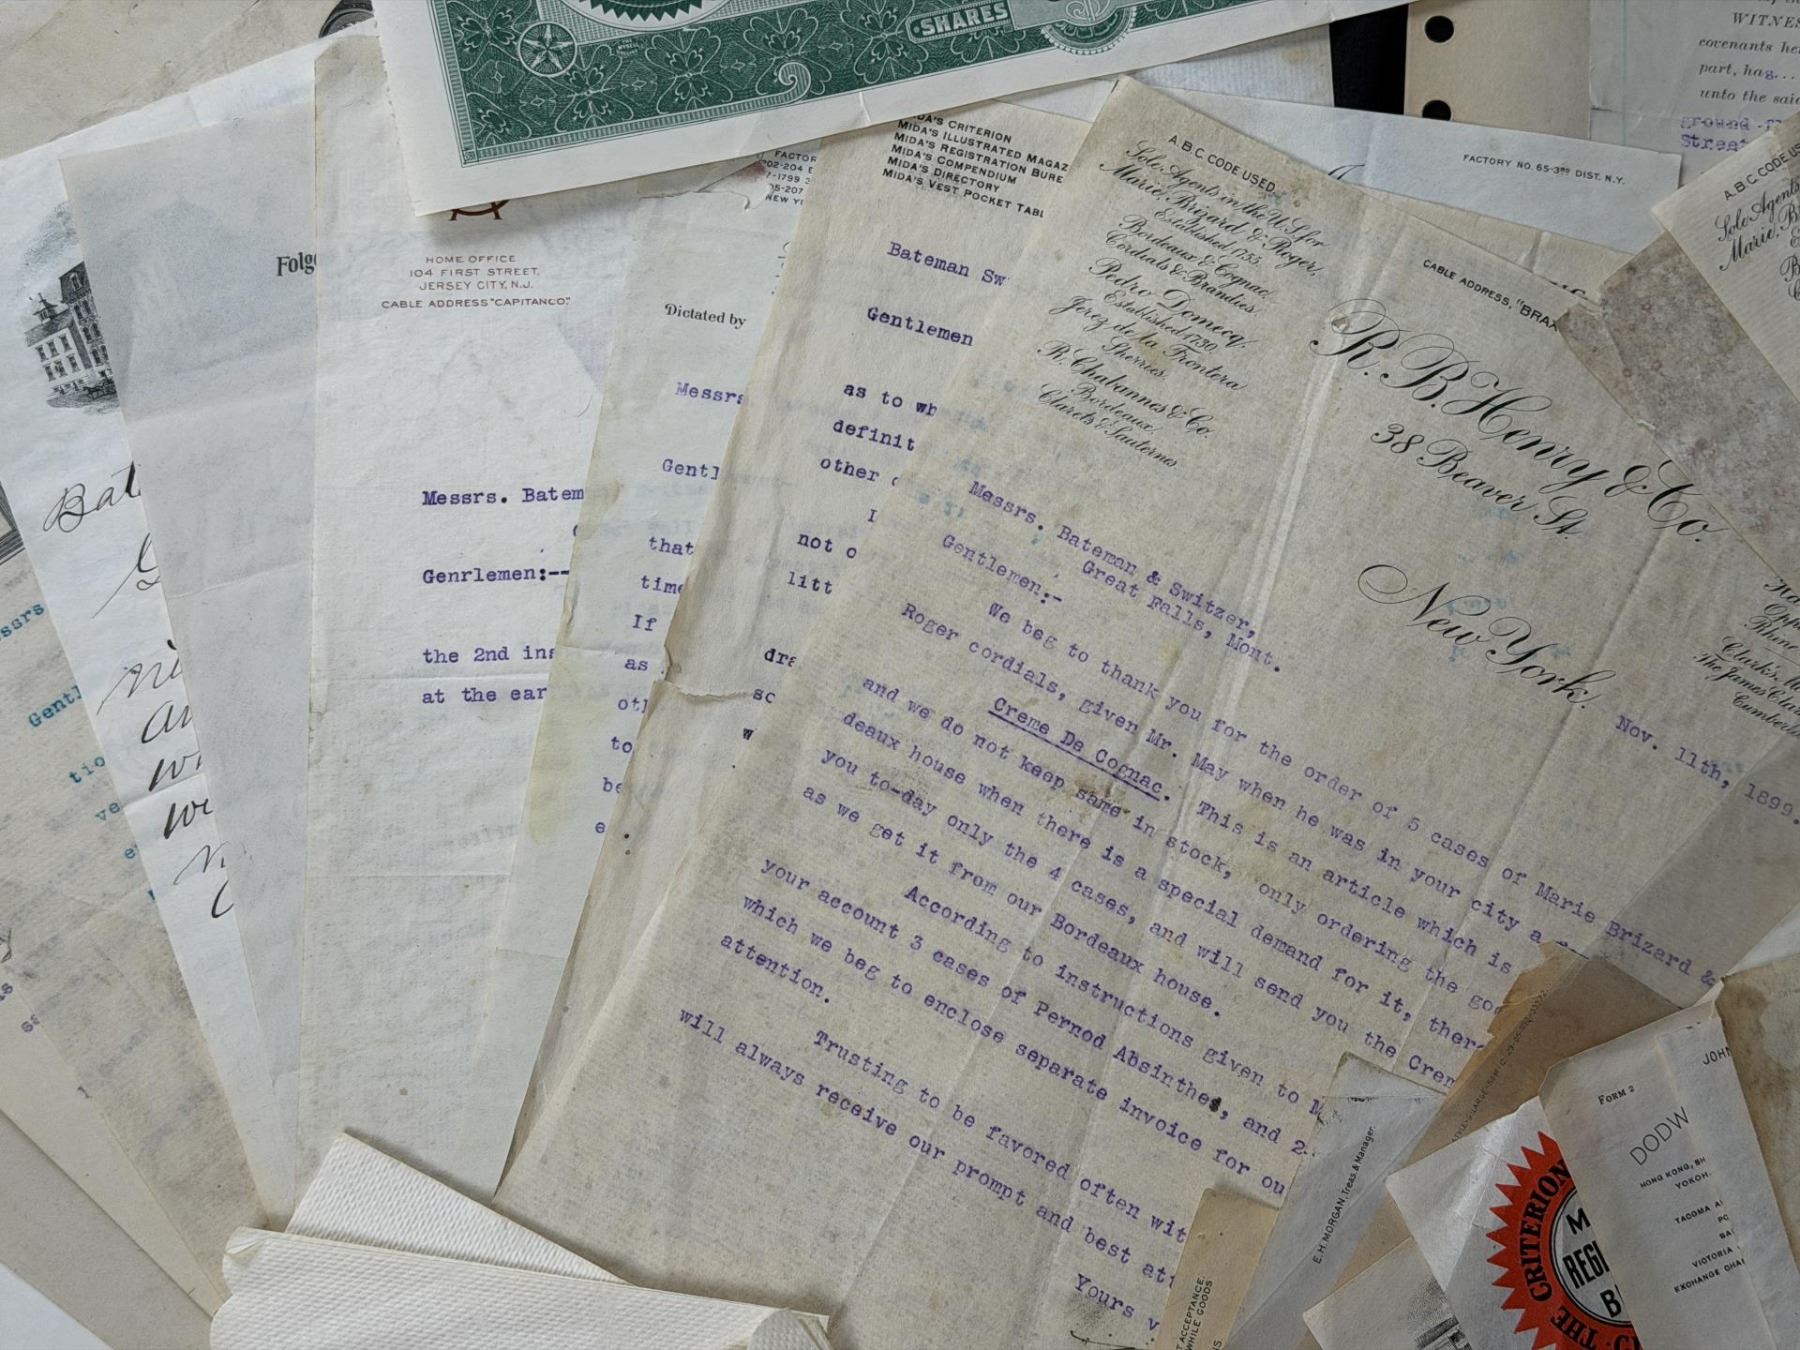 SHARES
WITNES
covenants he
part, has...
unto the said
Street
FACTORY NO. 65-3RD DIST. N.Y.
A.B.C. CODE US
Sole Agents
Marie, B
MIDA'S CRITERION
MIDA'S ILLUSTRATED MAGAZ
MIDA'S REGISTRATION BURE
MIDA'S COMPENDIUM
MIDA'S DIRECTORY
MIDA'S VEST POCKET TABL
Bateman Sw
Gentlemen
as to wh
definit
other
I
not o
litt
dra
so
w
FACTOR
NEW YO
Dictated by
Messrs
Gentl
that
time
If
as
oth
to
be
e
HOME OFFICE
104 FIRST STREET,
JERSEY CITY, N.J.
CABLE ADDRESS "CAPITANCO."
Messrs. Batem
Genrlemen:--
the 2nd ins
at the ear
Folg
Bat
G
ni
an
wi
we
Gentl
tio
ve
A.B.C. CODE USED.
Sole Agents in the U.S. for
Marie, Brizard & Roger,
Established 1755.
Bordeaux & Cognac.
Cordials & Brandies.
Pedro Domecq.
Established 1730.
Jerez de la Frontera
Sherries.
R. Chabannes & Co.
Bordeaux.
Clarets & Sauternes
CABLE ADDRESS, "BRAX
R. B. Henry & Co.
38 Beaver St.
New York.
Nov. 11th, 1899.
Clark's,
The James Clar
Cumberl
Messrs. Bateman & Switzer,
Great Falls, Mont.
Gentlemen:-
We beg to thank you for the order of 5 cases of Marie Brizard &
Roger cordials, given Mr. May when he was in your city a
Creme De Cognac. This is an article which is
and we do not keep same in stock, only ordering the go
deaux house when there is a special demand for it, there
you to-day only the 4 cases, and will send you the Crem
as we get it from our Bordeaux house.
According to instructions given to M
your account 3 cases of Pernod Absinthes, and 2
which we beg to enclose separate invoice for ou
attention.
Trusting to be favored often wit
will always receive our prompt and best att
Yours v
E.H. MORGAN, Treas. & Manager.
ACCEPTANCE.
WHILE GOODS
CRITERION
M
REGI
B
THE
FORM 2
JOHN
DODW
HONG KONG, SH
YOKOH
TACOMA A
VICTORIA
EXCHANGE CHA